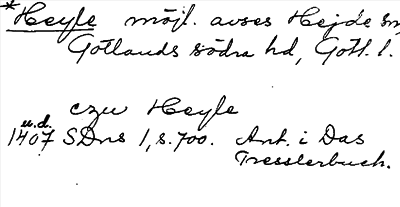 *Heyle möjl. avses Hejde sn
Gotlands södra hd, Gotl. l.
czu Heyle
u.d.
1407 SDns 1, s. 700. Ant. i Das
Tresslerbuch.